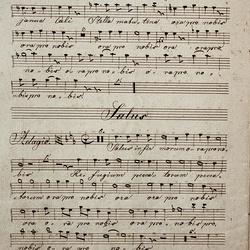 janua caeli Stella matutina ora pro nobis
ora pro nobis ora ora pro nobis ora ora pro
nobis ora pro nobis o ra pro no
bis pro nobis
Salus
Adagio. Salus infirmorum ora pro no
bis Refugium peccatorum pecca
torum ora pro nobis ora ora pro nobis
ora pro nobis ora pro nobis
nobis ora pro nobis